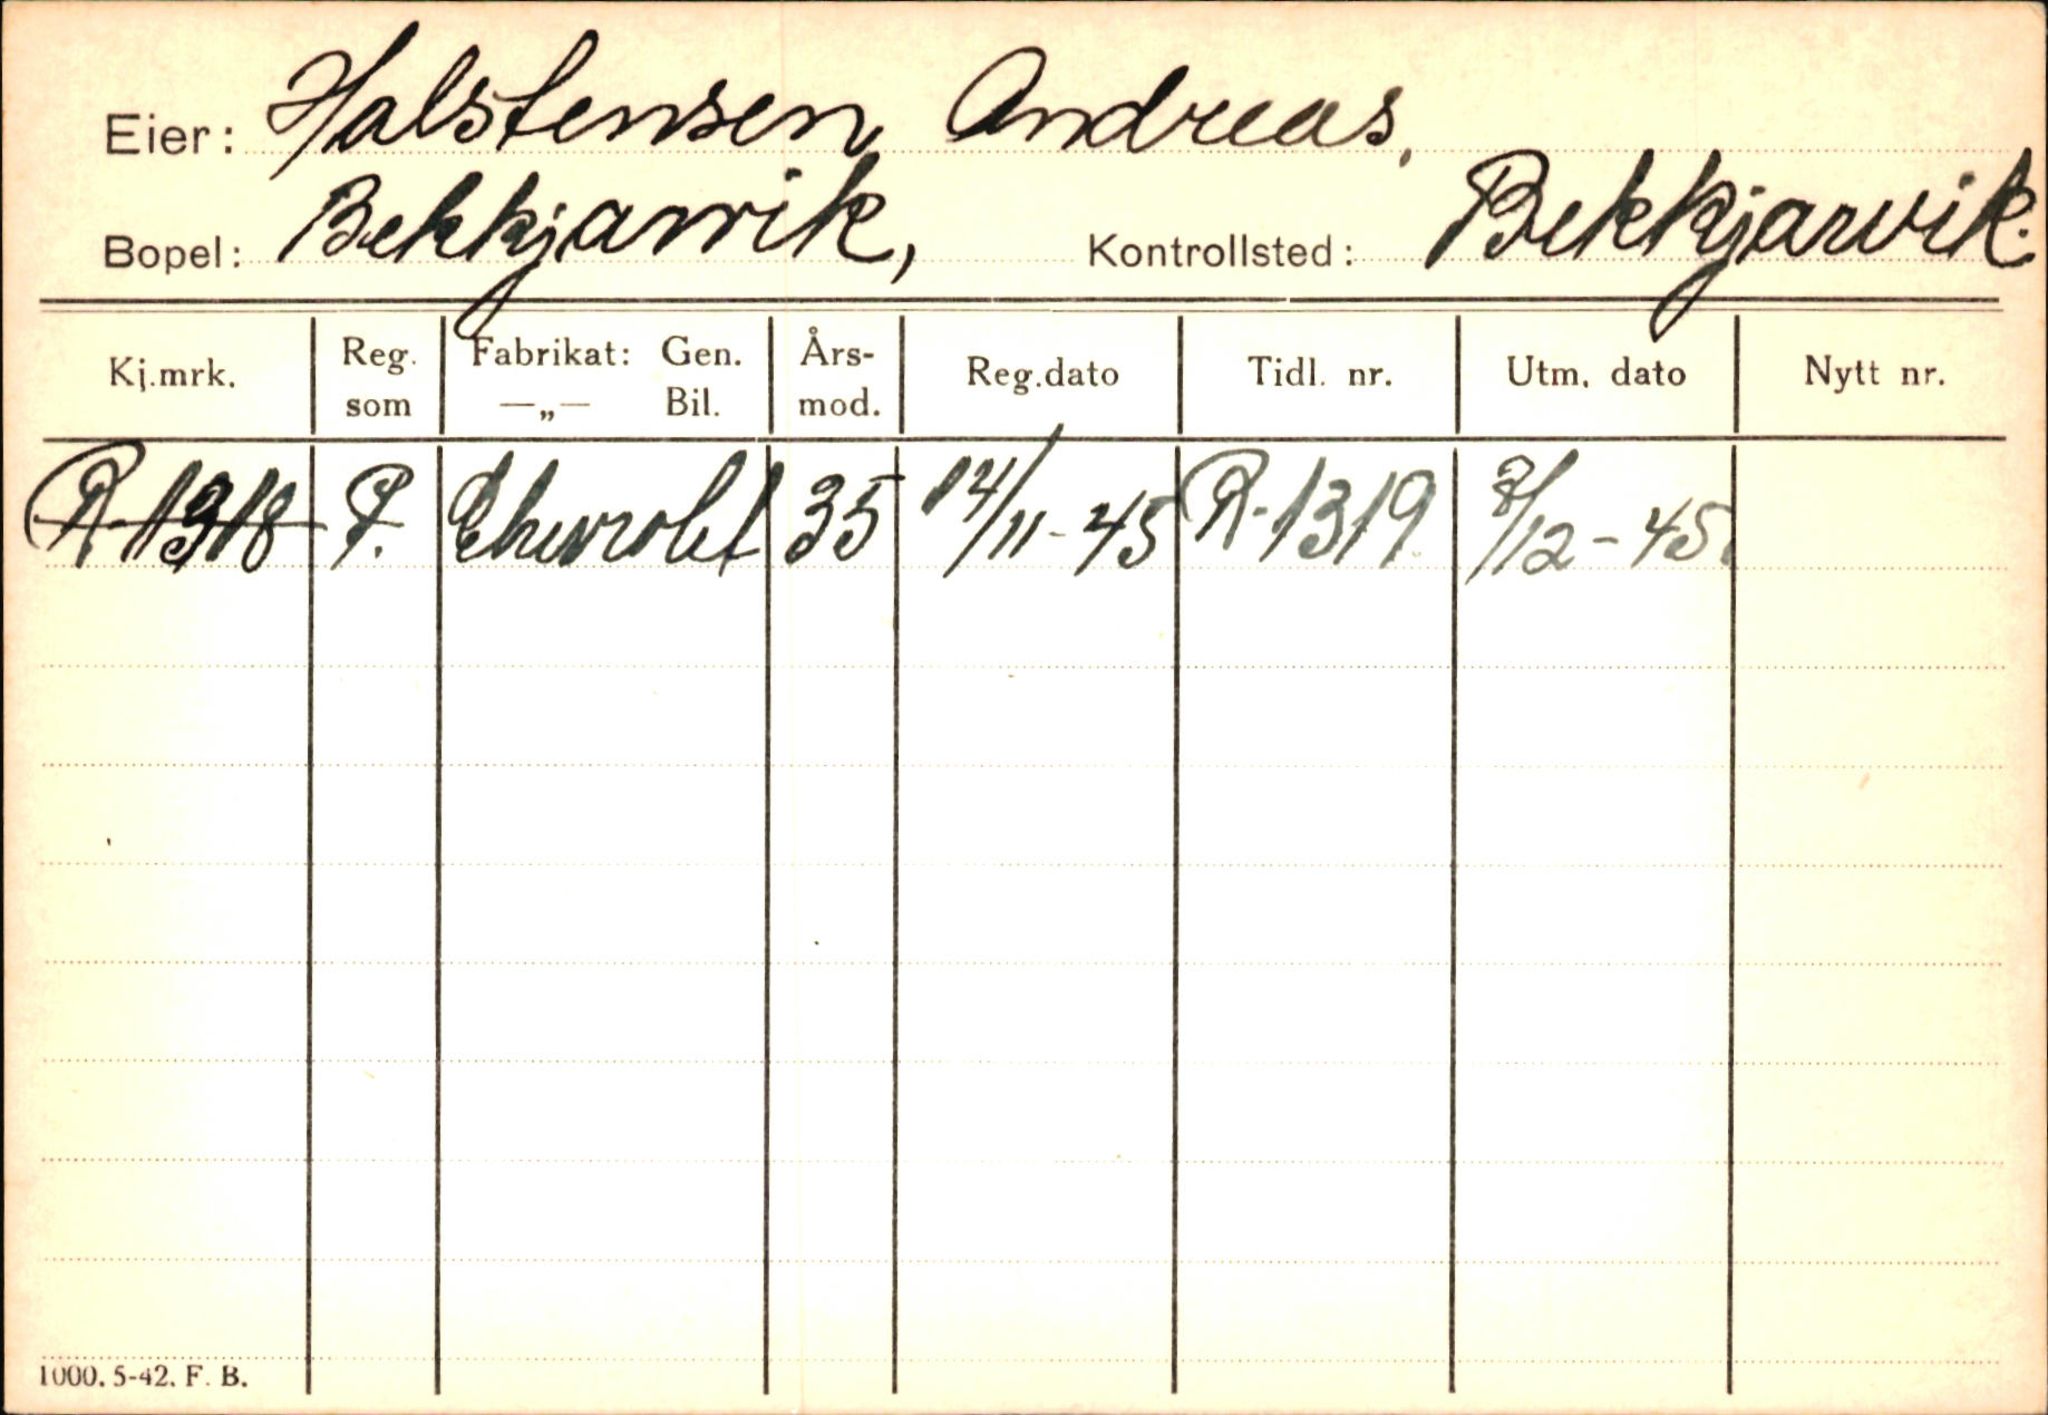 Eier: Halstensen, Andreas,
Bopel: Bekkjarvik, Kontrollsted: Bekkjarvik.
Kj.mrk. Reg. som Fabrikat: Gen. —„— Bil. Års-mod. Reg.dato Tidl. nr. Utm. dato Nytt nr.
R-1318 P. Chevrolet 35 14/11-45 R-1319 8/12-45.
1000. 5-42. F. B.